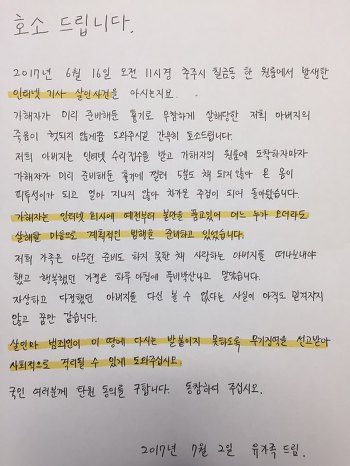 호소 드립니다.
2017년 6월 16일 오전 11시경 충주시 칠금동 한 원룸에서 발생한
인터넷 기사 살인사건을 아시는지요.
가해자가 미리 준비해둔 흉기로 무참하게 살해당한 저희 아버지의
죽음이 헛되지 않게끔 도와주시길 간곡히 호소드립니다.
저희 아버지는 인터넷 수리접수를 받고 가해자의 원룸에 도착하자마자
가해자가 미리 준비해둔 흉기에 찔려 5분도 채 되지 않아 온 몸이
피투성이가 되고 얼마 지나지 않아 차가운 주검이 되어 돌아왔습니다.
가해자는 인터넷 회사에 예전부터 불만을 품고있어 어느 누가 오더라도
살해할 마음으로 계획적인 범행을 준비하고 있었습니다.
저희 가족은 아무런 준비도 하지 못한 채 사랑하는 아버지를 떠나보내야
했고 행복했던 가정은 하루아침에 풍비박산나고 말았습니다.
자상하고 다정했던 아버지를 다신 볼 수 없다는 사실이 아직도 믿겨지지
않고 꿈만 같습니다.
살인마 범죄인이 이 땅에 다시는 발붙이지 못하도록 무기징역을 선고받아
사회적으로 격리될 수 있게 도와주십시오.
국민 여러분께 탄원 동의를 구합니다. 동참하여 주십시오.
2017년 7월 2일 유가족 드림.